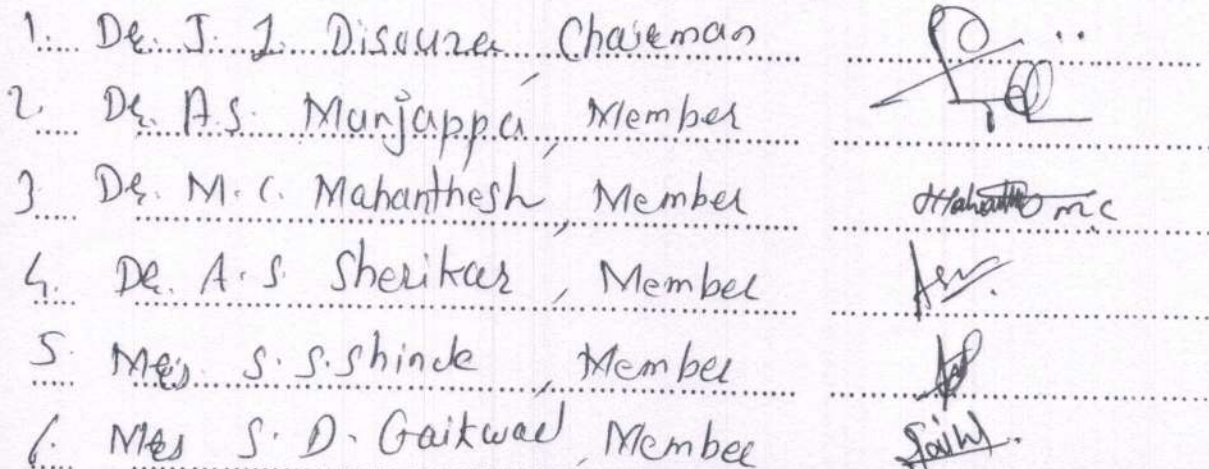 1. Dr. J. I. Disouza Chairman
2. Dr. A.S. Manjappa, Member
3. Dr. M.C. Mahanthesh, Member Mahanthesh m.c
4. Dr. A.S Sherikar, Member
5. Mrs S.S.Shinde, Member
6. Mrs S.D. Gaikwad, Member